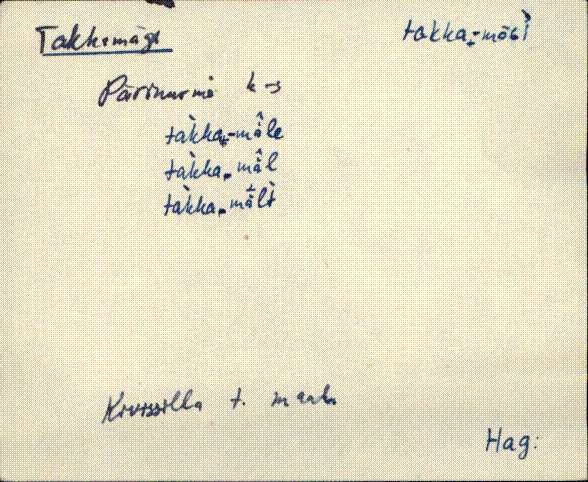 Takkemägi
takka-mäɢì
Pärinurme k-s
tàkka-mä̂le
tàkka-mä̂l
tàkka-mä̂lt
Kivissilla t. maal.
Hag: